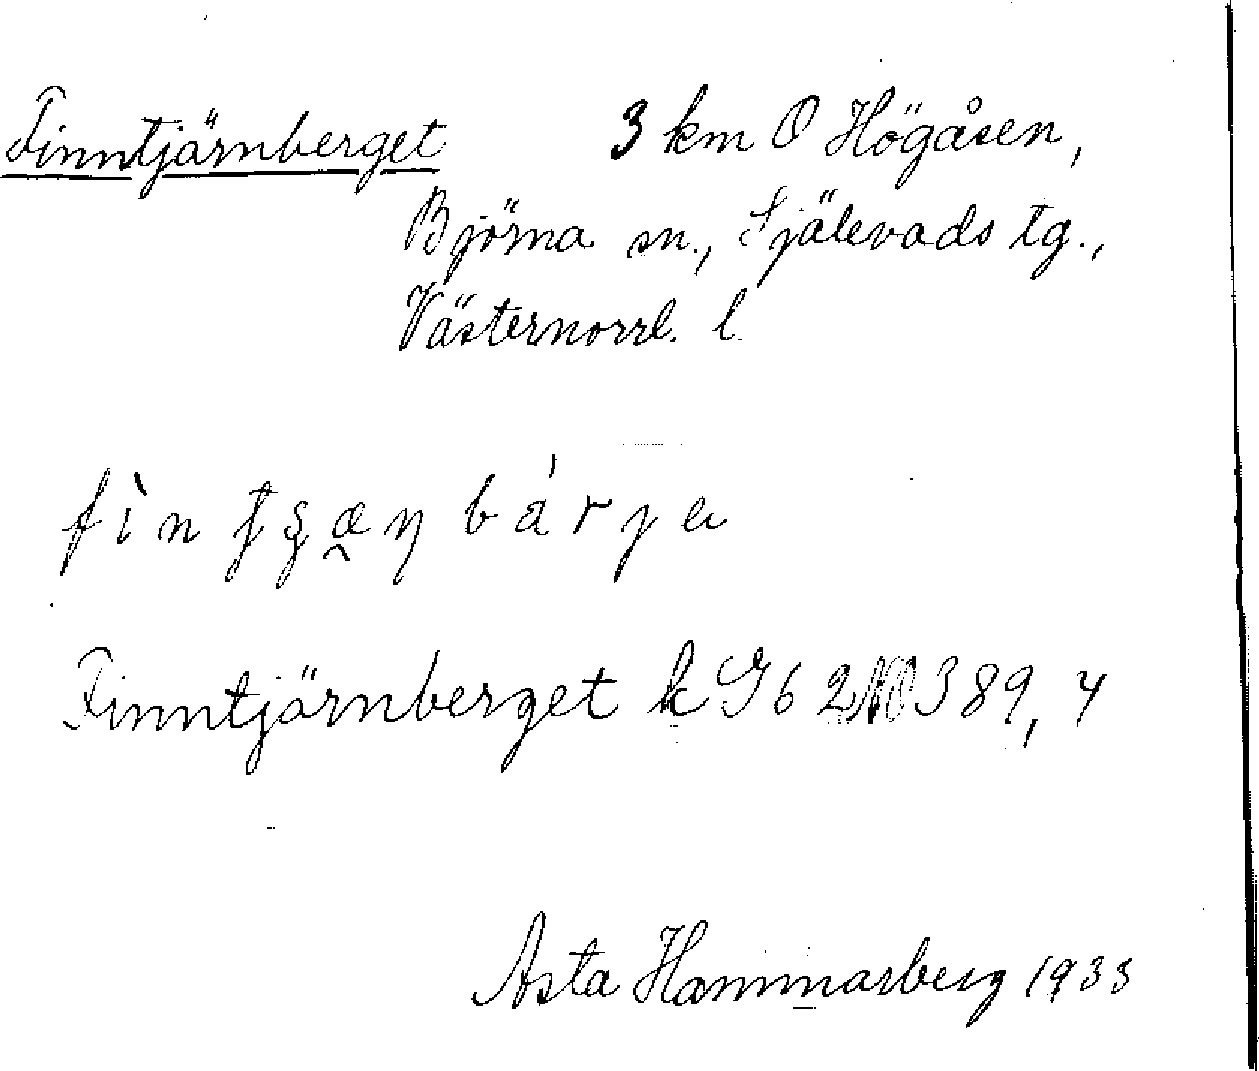 Finntjärnberget 3 km O Högåsen,
Björna sn., Själevads tg.,
Västernorrl. l.
Finntjärnberget k G6 2 NO 389,4
Asta Hammarberg 1933